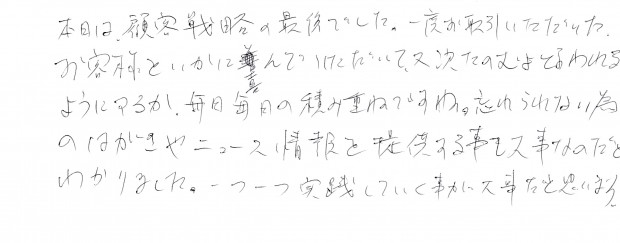 本日は、顧客戦略の最後でした。一度お取引いただいた、
お客様といかに喜んでいただいて、又次たのむよと言われる
ようにするか、毎日毎日の積み重ねですね。忘れられない為
のはがきやニュース、情報を提供する事も大事なのだと
わかりました。一つ一つ実践していく事が大事だと思います。